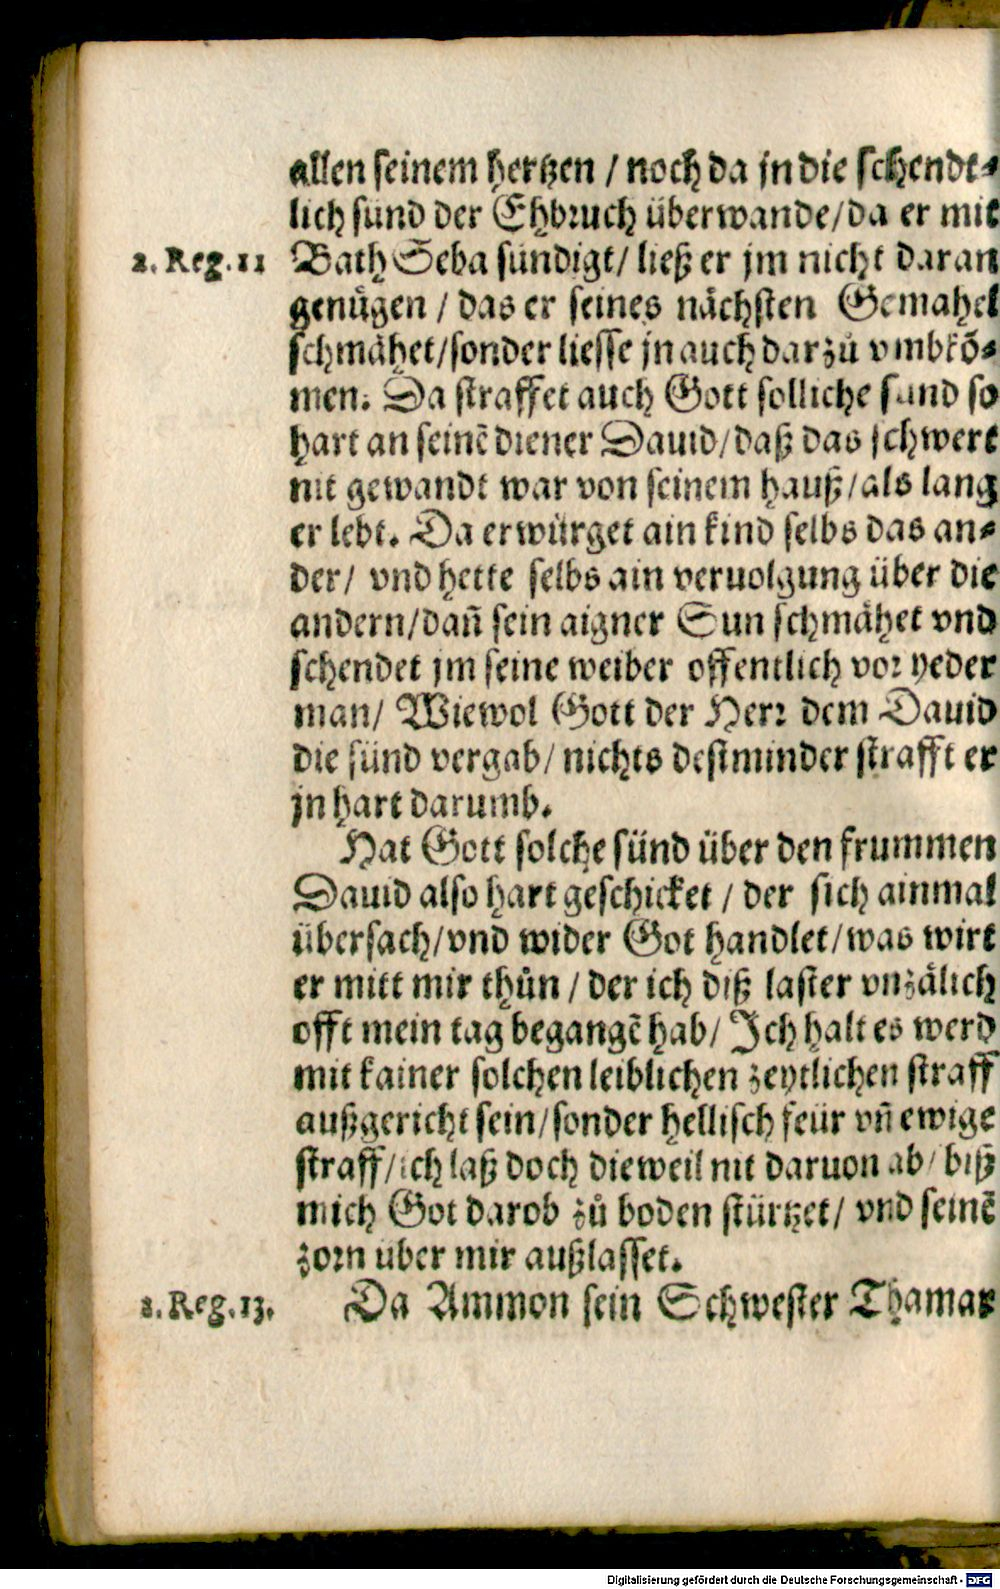 allen seinem hertzen / noch da jn die schendt⸗
lich sünd der Ehbruch überwande/da er mit
2. Reg. 11 Bath Seba sündigt/ ließ er jm nicht daran
genuͤgen / das er seines nächsten Gemahel
schmähet/sonder liesse jn auch darzuͦ vmbkõ⸗
men. Da straffet auch Gott solliche sünd so
hart an seinẽ diener Dauid/daß das schwert
nit gewandt war von seinem hauß/als lang
er lebt. Da erwürget ain kind selbs das an⸗
der/ vnd hette selbs ain veruolgung über die
andern/dañ sein aigner Sun schmähet vnd
schendet jm seine weiber offentlich vor yeder
man/ Wiewol Gott der Herr dem Dauid
die sünd vergab/ nichts destminder strafft er
jn hart darumb.
Hat Gott solche sünd über den frummen
Dauid also hart geschicket / der sich ainmal
übersach/vnd wider Got handlet/was wirt
er mitt mir thuͦn / der ich diß laster vnzälich
offt mein tag begangẽ hab/ Jch halt es werd
mit kainer solchen leiblichen zeytlichen straff
außgericht sein/sonder hellisch feür vñ ewige
straff/ich laß doch dieweil nit daruon ab/ biß
mich Got darob zuͦ boden stürtzet/ vnd seinẽ
zorn über mir außlasset.
2. Reg. 13. Da Ammon sein Schwester Thamar
Digitalisierung gefördert durch die Deutsche Forschungsgemeinschaft - DFG